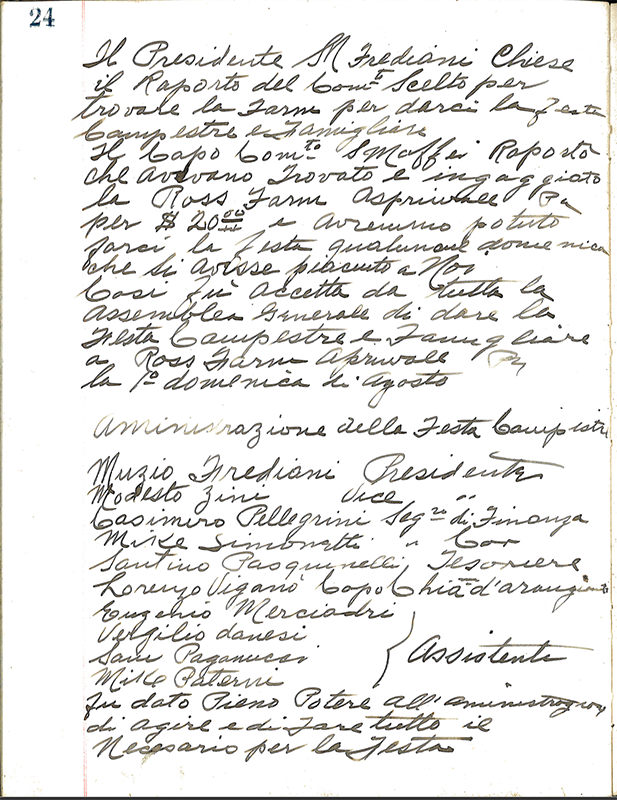 24
Il Presidente M Frediani Chiese
il Raporto del Com.t Scelto per
trovare la Farm per darci la festa
Campestre e Famigliare
Il Capo Com.to S Maffei Raporto
che Avevano Trovato e ingaggiato
la Ross Farm Asprivall Pa
per $ 20.00 e avremmo potuto
farci la festa qualunque domenica
che si avesse piaciuto a Noi
Cosi fù accetta da tutta la
Assemblea Generale di dare la
Festa Campestre e Famigliare
a Ross Farm Aprwall Pa
la 1.a domenica di Agosto
Aministrazione della Festa Campistre
Muzio Frediani Presidente
Modesto Zini Vice "
Casimero Pellegrini Seg.ro di Finanza
Mike Simonetti " Cor
Santino Pasquinelli Tesoriere
Lorenzo Viganò Capo
Eugenio Merciadri
Vergilio danesi
Sam Paganucci
Mike Paterni
Assistenti
fu dato Pieno Potere all'
di agire e di Fare tutto il
Necesario per la Festa